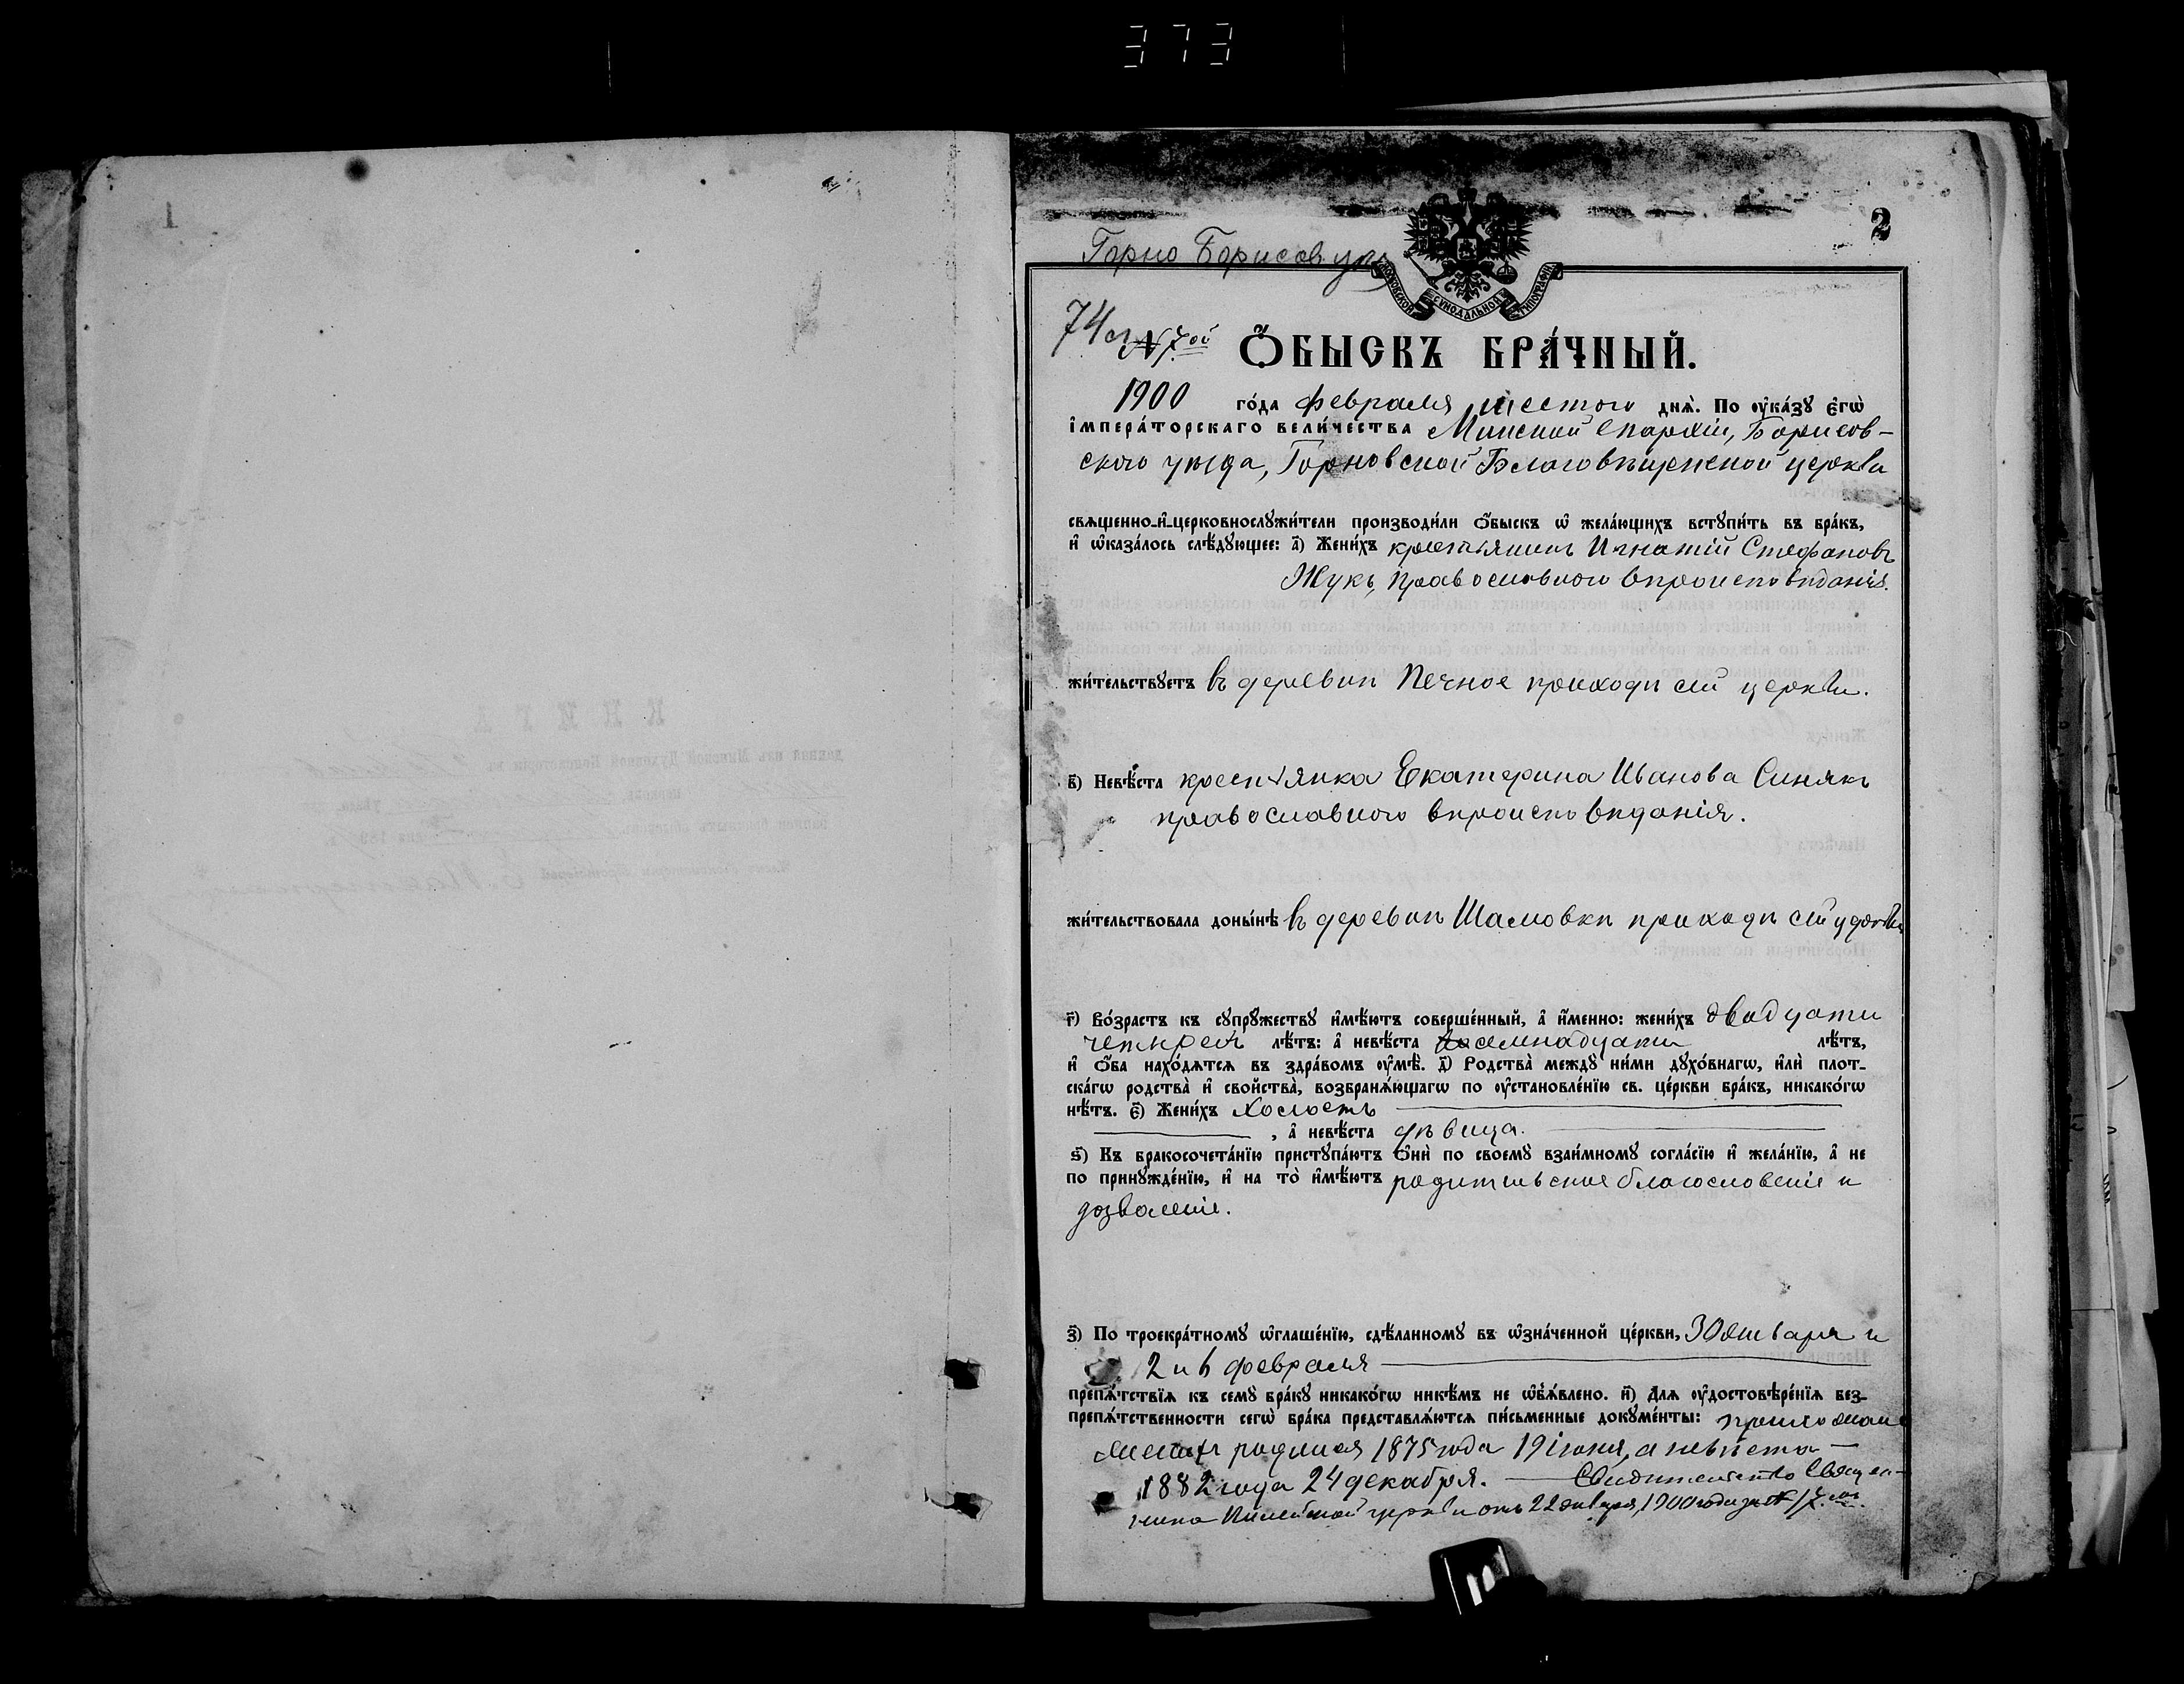 373
1
2
Горно Борисов уѣз
МОСКОВСКОЙ СѴНОДАЛЬНОЙ ТИПОГРАФІИ
74
№ 7ой
Ѻ҆БЫСКЪ БРА́ЧНЫЙ.
1900 го́да февраля шестого днѧ̀. По ᲂу҆ка́зꙋ є҆гѡ̀
і҆мпера́торскаго вели́чества Минской Епархіи, Борисов-
ского уѣзда, Горновской Благовѣщенской церкви
свѧщенно-и҆-церковнослꙋжи́тели производи́ли ѻ҆быскъ ѡ҆ жела́ющихъ встꙋпи́ть въ бра́къ,
и҆ ѡ҆каза́лось слѣ́дꙋющее: а҃) Жени́хъ крестьянинъ Игнатій Стефановъ
Жукъ, православного вѣроисповѣданія.
жи́тельствꙋетъ въ деревнѣ Печное приходѣ сей церкви.
в҃) Невѣ́ста крестьянка Екатерина Иванова Синякъ
православного вѣроисповѣданія.
жи́тельствовала доны́нѣ въ деревнѣ Шамовкѣ приходѣ сей церкви
г҃) Во́зрастъ къ сꙋпрꙋ́жествꙋ и҆мѣ́ютъ соверше́нный, а҆ и҆́менно: жени́хъ двадцати
четырехъ лѣ́тъ: а҆ невѣ́ста семнадцати лѣ́тъ,
и҆ ѻ҆́ба нахо́дѧтсѧ въ здра́вомъ ᲂу҆мѣ̀. д҃) Родства̀ междꙋ̀ ни́ми дꙋхо́внагѡ, и҆лѝ плот-
ска́гѡ родства̀ и҆ свойства̀, возбранѧ́ющагѡ по ᲂу҆становле́нїю св. це́ркви бра́къ, никако́гѡ
нѣ́тъ. є҃) Жени́хъ холостъ
, а҆ невѣ́ста дѣвица.
ѕ҃) Къ бракосочета́нїю пристꙋпа́ютъ ѻ҆нѝ по своемꙋ̀ взаи́мномꙋ согла́сїю и҆ жела́нїю, а҆ не
по принꙋжде́нїю, и҆ на то̀ и҆мѣ́ютъ родительское благословеніе и
дозволеніе.
з҃) По троекра́тномꙋ ѡ҆глаше́нїю, сдѣ́ланномꙋ въ ѡ҆зна́ченной це́ркви, 30 января и
2 и 6 февраля
препѧ́тствїѧ къ семꙋ̀ бра́кꙋ никако́гѡ никѣ́мъ не ѡ҆бѧ́влено. и҃) Длѧ ᲂу҆достовѣре́нїѧ без-
препѧ́тственности сегѡ̀ бра́ка представлѧ́ютсѧ пи́сьменные докꙋме́нты:
родился 1875 года 19 іюня, а невѣста —
1882 года 24 декабря. — Свидѣтельство Священ-
ника церкви отъ 22 января 1900 года за № 17